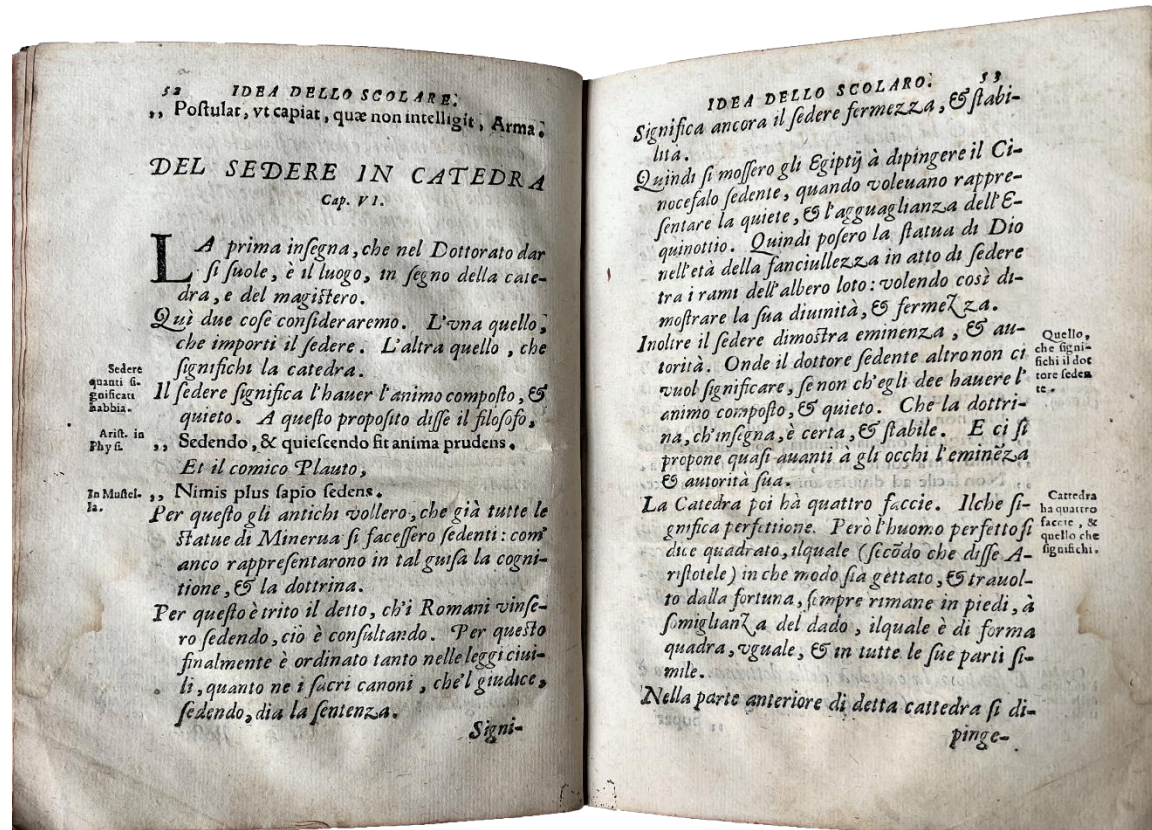 52 IDEA DELLO SCOLARE.
„ Poſtulat, vt capiat, quæ non intelligit, Arma.
DEL SEDERE IN CATEDRA
Cap. VI.
LA prima inſegna, che nel Dottorato dar
ſi ſuole, è il luogo, in ſegno della cate-
dra, e del magiſtero.
Quì due coſe conſideraremo. L'vna quello,
che importi il ſedere. L'altra quello, che
ſignifichi la catedra.
Sedere
quanti ſi-
gnificati
habbia.
Il ſedere ſignifica l'hauer l'animo compoſto, &
quieto. A queſto propoſito diſſe il filoſofo,
Ariſt. in
Phyſi.
„ Sedendo, & quieſcendo fit anima prudens.
Et il comico Plauto,
In Muſtel-
la.
„ Nimis plus ſapio ſedens.
Per queſto gli antichi vollero, che già tutte le
ſtatue di Minerua ſi faceſſero ſedenti: com'
anco rappreſentarono in tal guiſa la cogni-
tione, & la dottrina.
Per queſto è trito il detto, ch'i Romani vinſe-
ro ſedendo, ciò è conſultando. Per queſto
finalmente è ordinato tanto nelle leggi ciui-
li, quanto ne i ſacri canoni, che'l giudice,
ſedendo, dia la ſentenza.
Signi-
IDEA DELLO SCOLARO. 53
Significa ancora il ſedere fermezza, & ſtabi-
lità.
Quindi ſi moſſero gli Egiptij à dipingere il Ci-
nocefalo ſedente, quando voleuano rappre-
ſentare la quiete, & l'agguaglianza dell'E-
quinottio. Quindi poſero la ſtatua di Dio
nell'età della fanciullezza in atto di ſedere
tra i rami dell'albero loto: volendo così di-
moſtrare la ſua diuinità, & fermezza.
Inoltre il ſedere dimoſtra eminenza, & au-
torità. Onde il dottore ſedente altro non ci
vuol ſignificare, ſe non ch'egli dee hauere l'
animo compoſto, & quieto. Che la dottri-
na, ch'inſegna, è certa, & ſtabile. E ci ſi
propone quaſi auanti à gli occhi l'eminēza
& autorità ſua.
Quello,
che ſigni-
fichi il dot
tore ſeden
te.
La Catedra poi hà quattro faccie. Ilche ſi-
gnifica perfettione. Però l'huomo perfetto ſi
dice quadrato, ilquale (ſecōdo che diſſe A-
riſtotele) in che modo ſia gettato, & trauol-
to dalla fortuna, ſempre rimane in piedi, à
ſomiglianza del dado, ilquale è di forma
quadra, vguale, & in tutte le ſue parti ſi-
mile.
Cattedra
ha quattro
faccie, &
quello che
ſignifichi.
Nella parte anteriore di detta cattedra ſi di-
pinge-